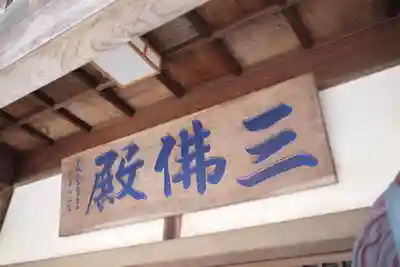 三佛殿